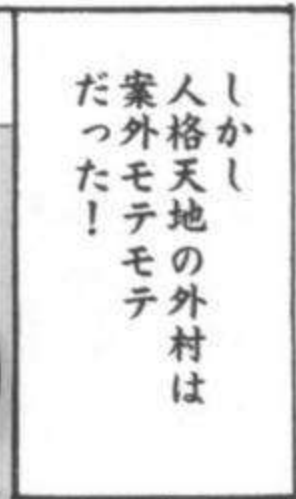 しかし
人格天地の外村は
案外モテモテ
だった！